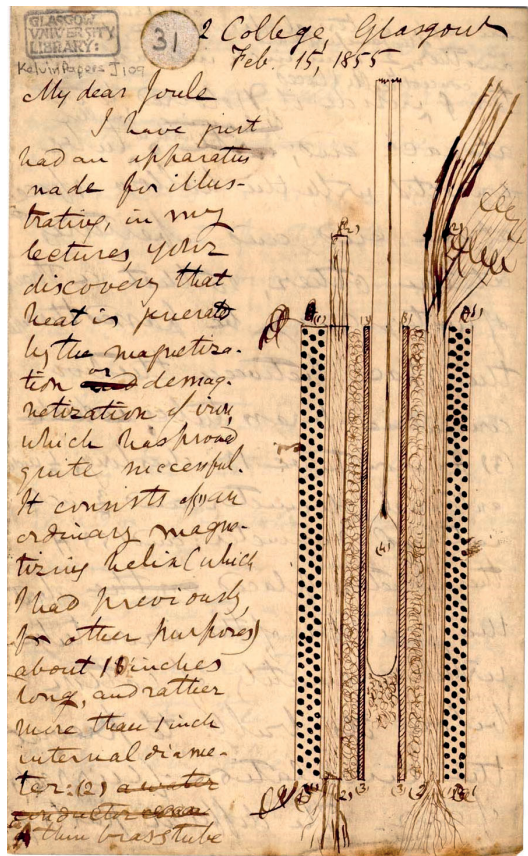 GLASGOW
UNIVERSITY
LIBRARY:
31
Kelvin Papers J109
2 College, Glasgow
Feb. 15, 1855
My dear Joule
I have just
had an apparatus
made for illus-
trating, in my
lectures, your
discovery that
heat is generated
by the magnetiza-
tion or demag-
netization of iron,
which has proved
quite successful.
It consists of (1) an
ordinary magne-
tizing helix (which
I had previously,
for other purposes)
about 18 inches
long, and rather
more than 1 inch
internal diame-
ter: (2) a water
conductor
A thin brass tube
(2)
(2)
(1)
(3)
(3)
(1)
(4)
(2)
(3)
(3)
(2)